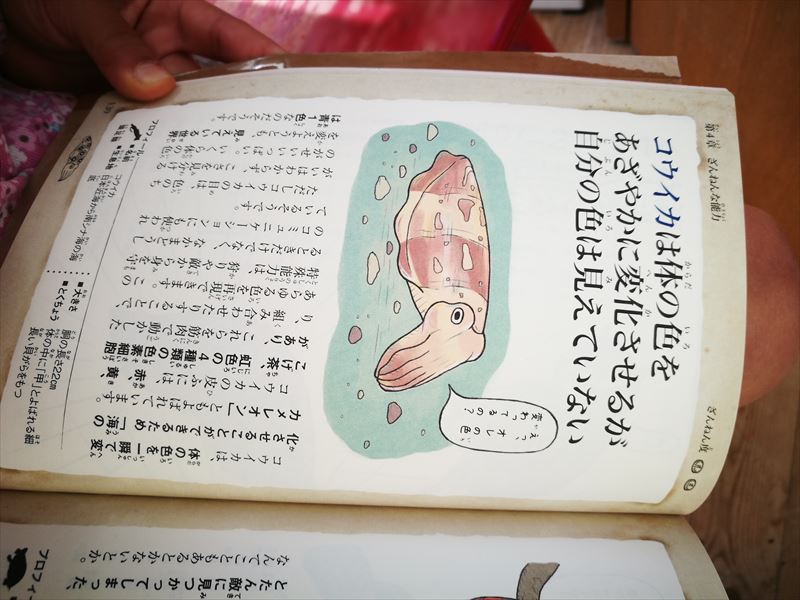 第4章 ざんねんな能力
ざんねん度
コウイカは体の色を
あざやかに変化させるが
自分の色は見えていない
えっ、オレの色、
変わってるの?
コウイカは、体の色を一瞬で変
化させることができるため「海の
カメレオン」ともよばれています。
コウイカの皮ふには、赤、黄、
こげ茶、虹色の4種類の色素細胞
があり、これらを筋肉で動かした
り、組み合わせたりすることで、
あらゆる色を再現できます。この
特殊能力は、狩りや敵から身を守
るときだけでなく、なかまどうし
のコミュニケーションにも使われ
ているそうです。
ただしコウイカの目は、色のち
がいはわからず、こさを見分ける
のがせいいっぱい。体の色
を変えようとも、見えている世界
は青1色なのだそうです。
プロフィール
■名前 コウイカ
■生息地 日本近海から南シナ海の海
■大きさ 胴の長さ22cm
■とくちょう 体の中に「甲」とよばれる細
長い貝がらをもつ
とたん敵に見つかってしまった、
なんてこともあるとかないとか。
プロフィー